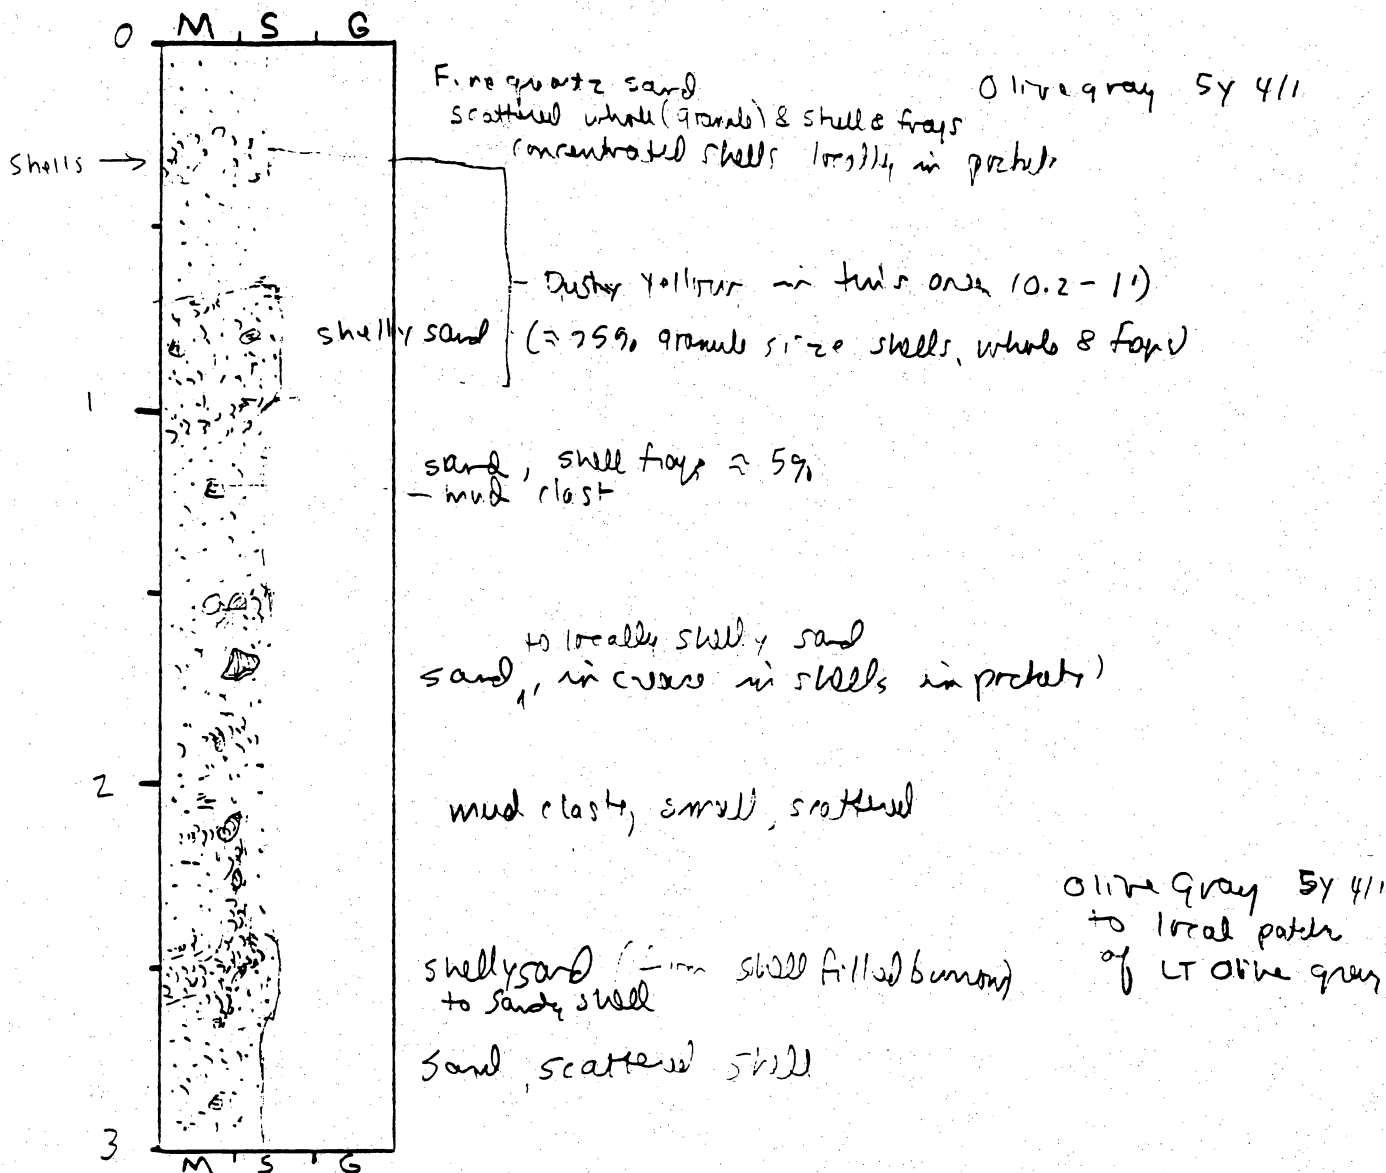 M S G
0
Fine quartz sand
Olive gray 5Y 4/1
scattered whole (granule) & shell & frags
concentrated shells locally in pockets
Shells →
- Dusky Yellow in this area (0.2 - 1')
shelly sand (≈ 25% granule size shells, whole & frags)
1
sand, shell frags ≈ 5%
- mud clast
to locally shelly sand
sand, increase in shells in pockets)
2
mud clasts, small, scattered
Olive Gray 5Y 4/1
to local patches
of LT Olive gray
shelly sand ( shell filled burrow)
to sandy shell
sand, scattered shell
3
M S G